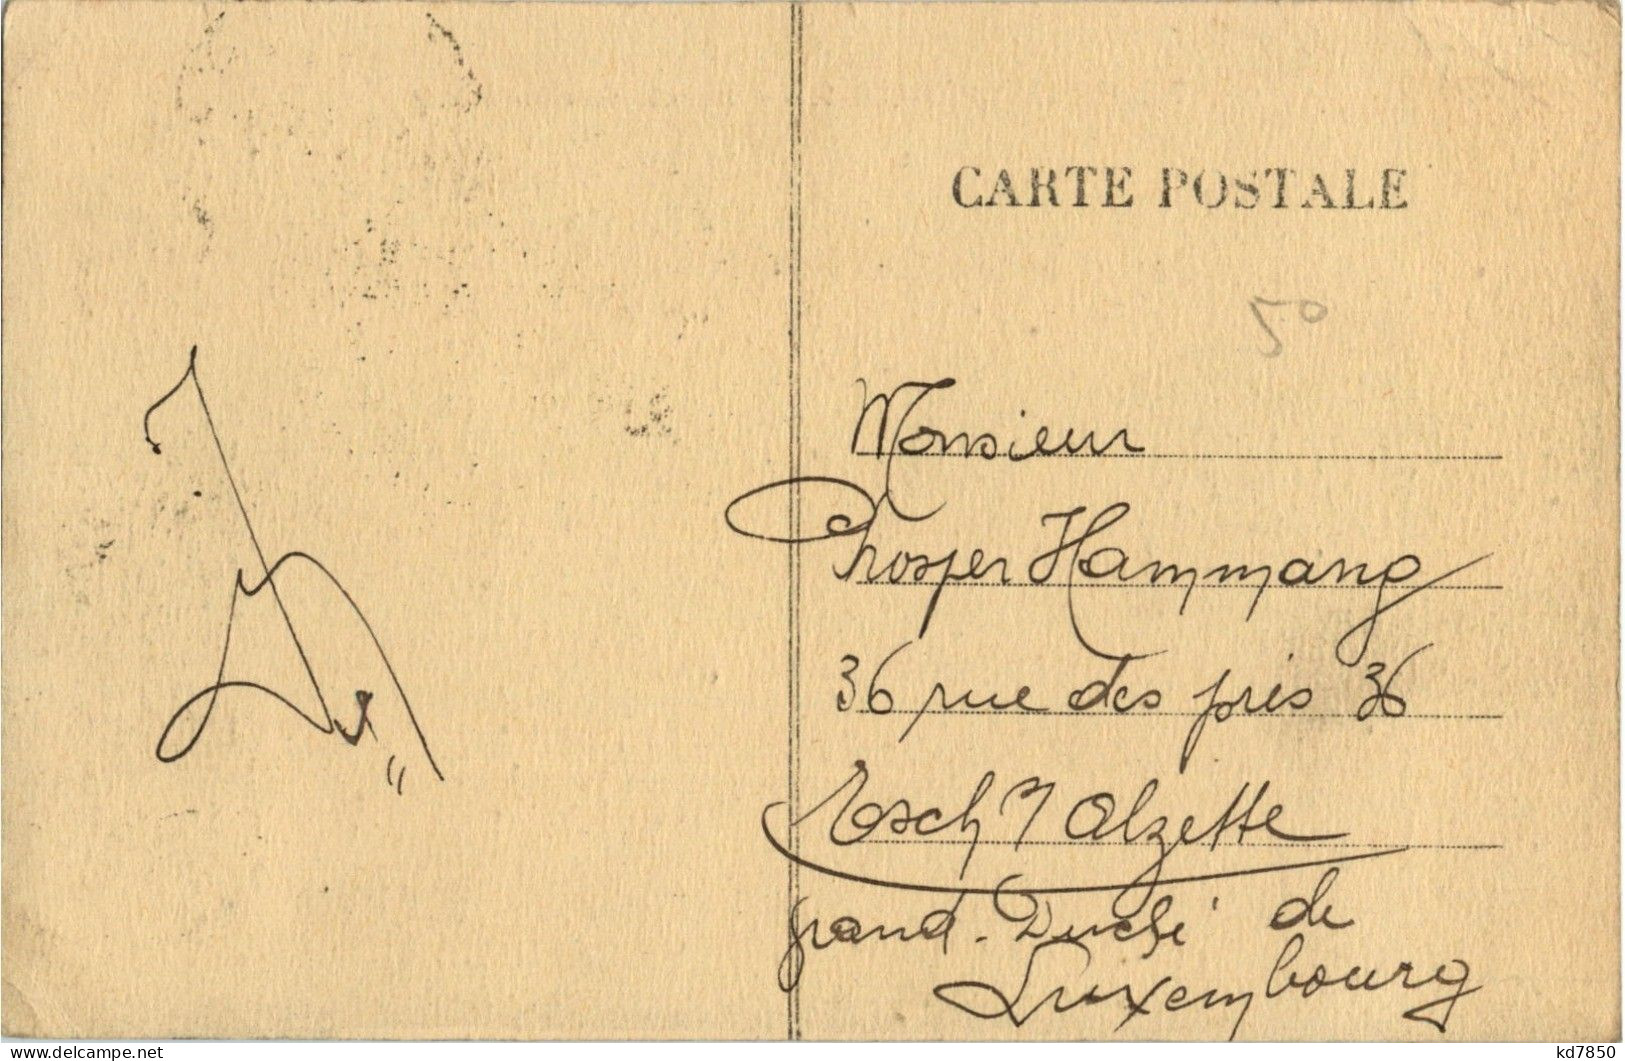 CARTE POSTALE
50
Monsieur
Prosper Hammang
36 rue des prés 36
Esch / Alzette
grand-Duché de
Luxembourg
delcampe.net
kd7850